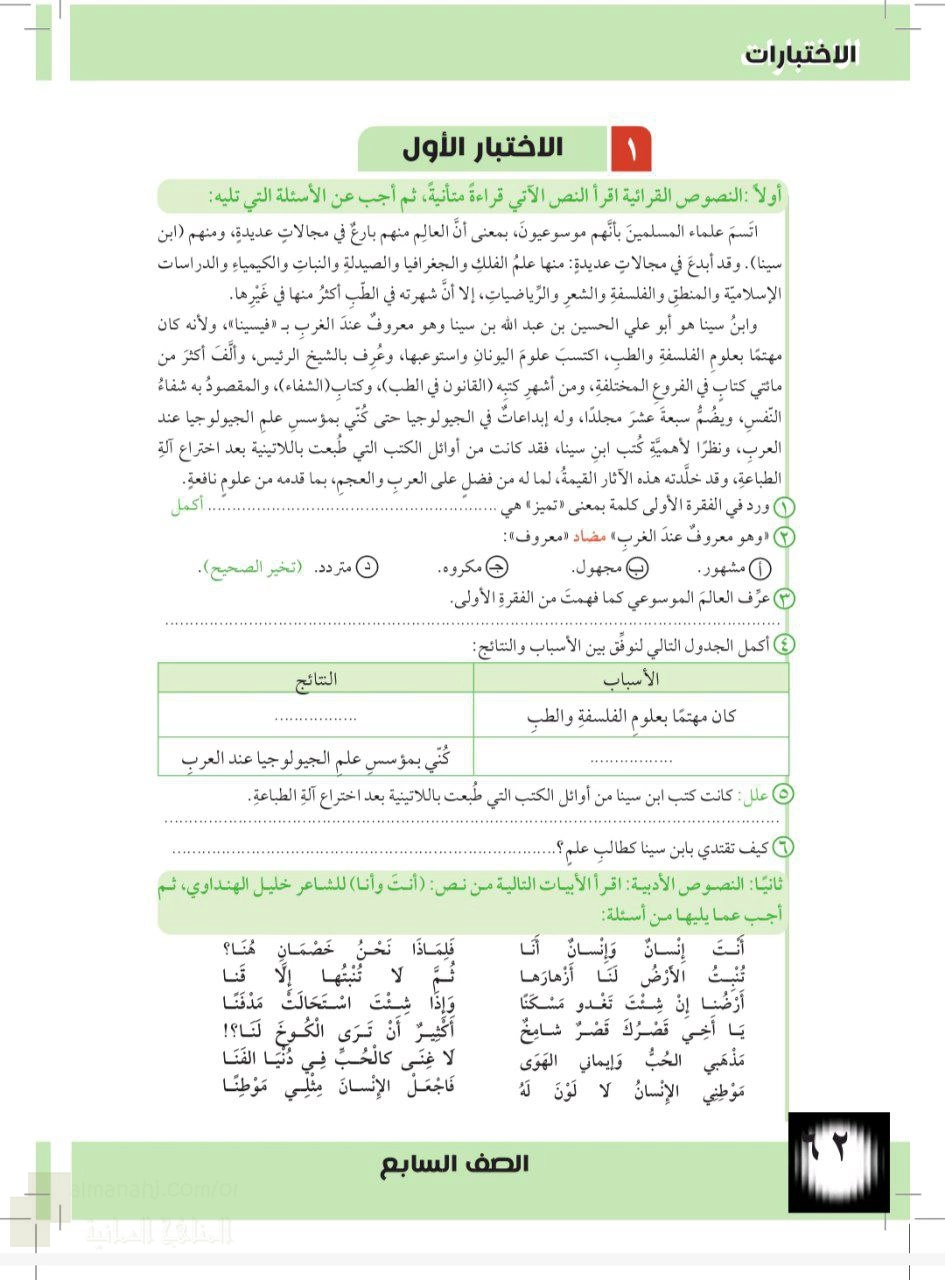 الاختبارات
١ الاختبار الأول
أولاً :النصوص القرائية اقرأ النص الآتي قراءةً متأنيةً، ثم أجب عن الأسئلة التي تليه:
اتَسمَ علماء المسلمينَ بأنَّهم موسوعيونَ، بمعنى أنَّ العالِم منهم بارعٌ في مجالاتٍ عديدةٍ، ومنهم (ابن
سينا). وقد أبدعَ في مجالاتٍ عديدةٍ: منها علمُ الفلكِ والجغرافيا والصيدلةِ والنباتِ والكيمياءِ والدراسات
الإسلاميّة والمنطقِ والفلسفةِ والشعرِ والرِّياضياتِ، إلا أنَّ شهرته في الطّبِ أكثرُ منها في غَيْرِها.
وابنُ سينا هو أبو علي الحسين بن عبد الله بن سينا وهو معروفٌ عندَ الغربِ بـ «فيسينا»، ولأنه كان
مهتمًا بعلومِ الفلسفةِ والطبِ، اكتسبَ علومَ اليونانِ واستوعبها، وعُرِف بالشيخِ الرئيس، وألَّفَ أكثرَ من
مائتي كتابٍ في الفروعِ المختلفةِ، ومن أشهرِ كتبِه (القانون في الطب)، وكتاب(الشفاء)، والمقصودُ به شفاءُ
النّفسِ، ويضُمُّ سبعةَ عشرَ مجلدًا، وله إبداعاتٌ في الجيولوجيا حتى كُنّي بمؤسسِ علمِ الجيولوجيا عند
العربِ، ونظرًا لأهميَّةِ كُتب ابنِ سينا، فقد كانت من أوائل الكتب التي طُبعت باللاتينية بعد اختراع آلةِ
الطباعةِ، وقد خلَّدته هذه الآثار القيمةُ، لما له من فضلٍ على العربِ والعجمِ، بما قدمه من علومٍ نافعةٍ.
١ ورد في الفقرة الأولى كلمة بمعنى «تميز» هي ........................................................ أكمل
٢ «وهو معروفٌ عندَ الغربِ» مضاد «معروف»:
أ مشهور. ب مجهول. جـ مكروه. د متردد. (تخير الصحيح).
٣ عرِّف العالمَ الموسوعي كما فهمتَ من الفقرةِ الأولى.
........................................................................................................................
٤ أكمل الجدول التالي لنوفِّق بين الأسباب والنتائج:
الأسباب النتائج
كان مهتمًا بعلومِ الفلسفةِ والطبِ .................
................. كُنّي بمؤسسِ علمِ الجيولوجيا عند العربِ
٥ علل: كانت كتب ابن سينا من أوائل الكتب التي طُبعت باللاتينية بعد اختراع آلةِ الطباعةِ.
........................................................................................................................
٦ كيف تقتدي بابن سينا كطالبِ علمٍ؟..........................................................................
ثانيًا: النصوص الأدبية: اقرأ الأبيات التالية من نص: (أنتَ وأنا) للشاعر خليل الهنداوي، ثم
أجب عما يليها من أسئلة:
أَنْتَ إِنْسانٌ وَإِنْسانٌ أَنَا فَلِمَاذَا نَحْنُ خَصْمَانِ هُنَا؟
تُنْبِتُ الأَرْضُ لَنَا أَزْهارَهـا ثُمَّ لَا تُنْبِتُها إلَّا قَنا
أَرْضُنا إِنْ شِئْتَ تَغْدو مَسْكَنًا وَإِذَا شِئْتَ اسْتَحَالَتْ مَدْفَنًا
يَا أَخِي قَصْرُكَ قَصْرٌ شامِخٌ أَكْثِيرٌ أَنْ تَرَى الْكُوخَ لَنَا؟!
مَذْهَبي الحُبُّ وَإيماني الهَوَى لا غِنَى كالْحُبِّ فِي دُنْيَا الفَنَا
مَوْطِنِي الإِنْسانُ لا لَوْنَ لَهُ فَاجْعَلْ الإِنْسانَ مِثْلِي مَوْطِنًا
٦٢
الصف السابع
almanahj.com/o
المناهج العمانية